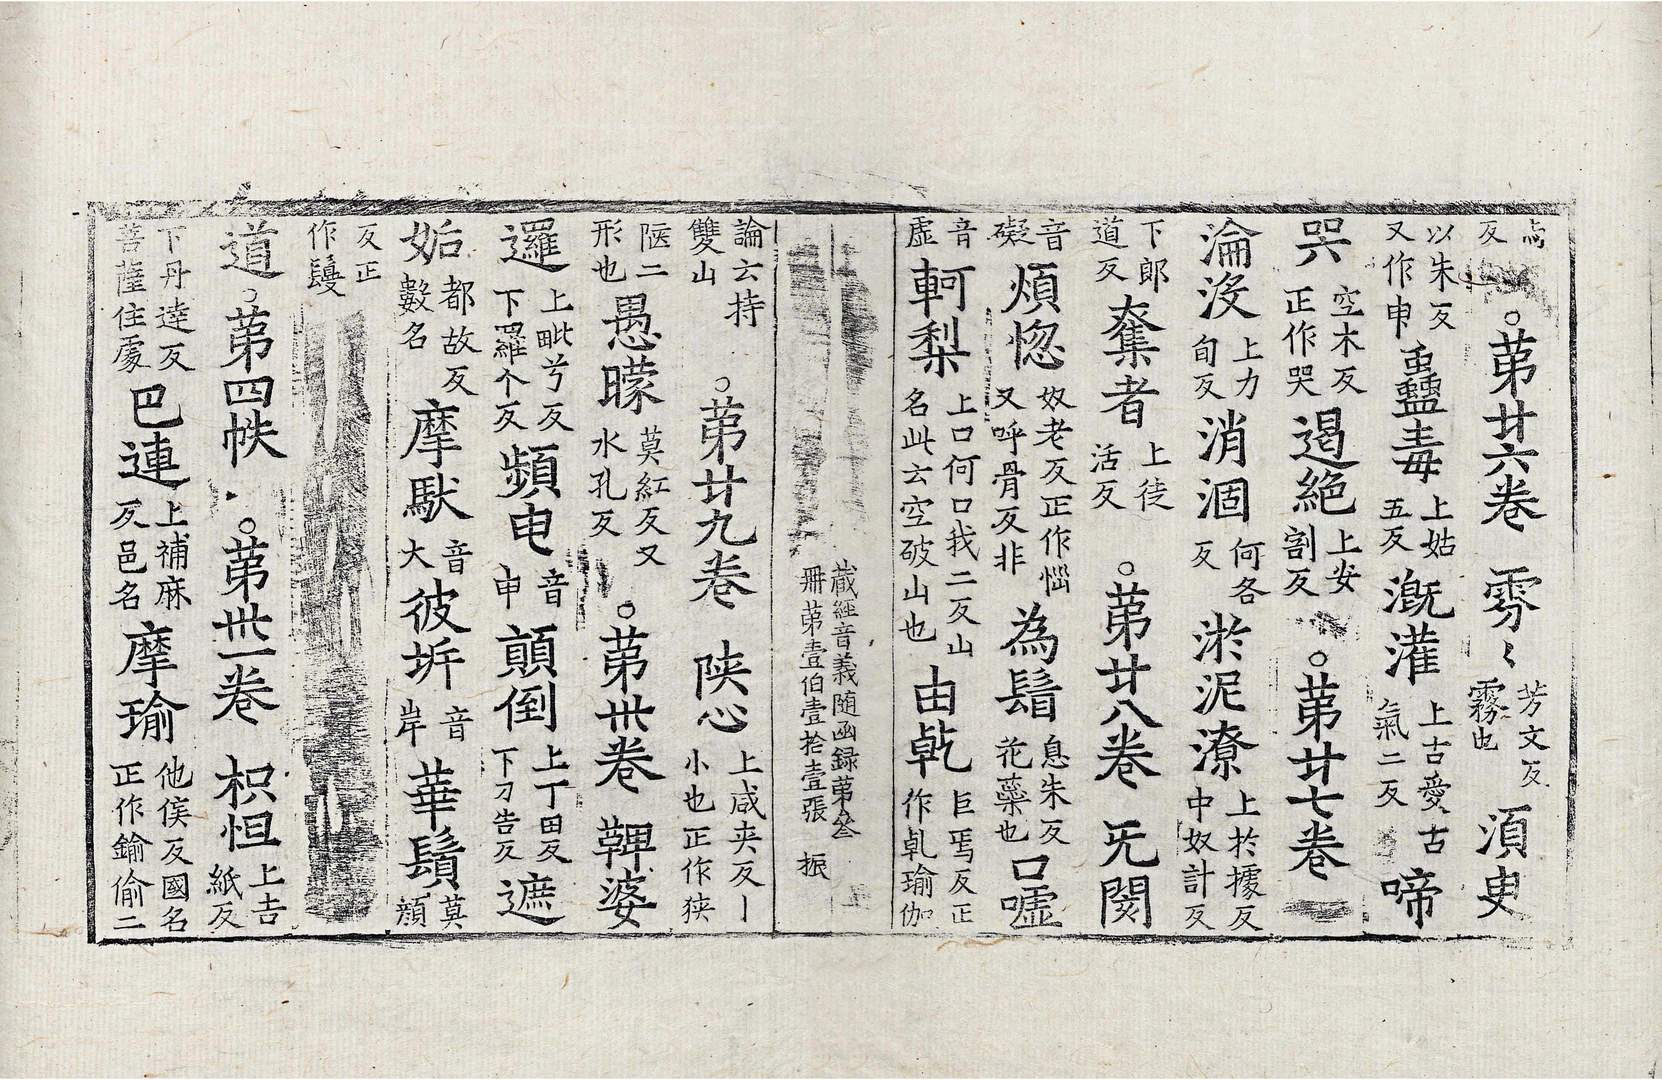 反○苐廿六卷 雰〻芳文反霧也 湏㬰
以朱反又作申 蠱毒上姑五反 溉灌上古愛古氣二反 啼
哭空木反正作哭 遏絶上安割反 ○苐廿七卷
淪沒上力旬反 消涸何各反 淤泥上於據反中奴計反 潦
下郎道反 奪者上徒活反 ○苐廿八卷 旡閡
音礙 煩惚奴老反正作惱又呼骨反非 為鬚息朱反花蘂也 口噓
音虛 軻梨上口何口我二反山名此云空破山也 由乹巨焉反正作乹瑜伽
藏經音義随函録苐叁
冊苐壹伯壹拾壹張 振
論云持雙山 ○苐廿九卷 陜心上咸夹反丨小也正作狭
陿二形也 愚矇莫紅反又水孔反 ○苐卅卷 鞞婆
邏上毗兮反下羅个反 頻申音申 顛倒上丁田反下刀告反 遮
妬都故反數名 摩馱音大 彼㟁音岸 華鬚莫顔
反正作鬘
道○苐四帙 ○苐卅一卷 枳怛上吉紙反
下丹達反菩薩住處 巴連上補麻反邑名 摩瑜他侯反國名正作鍮偷二